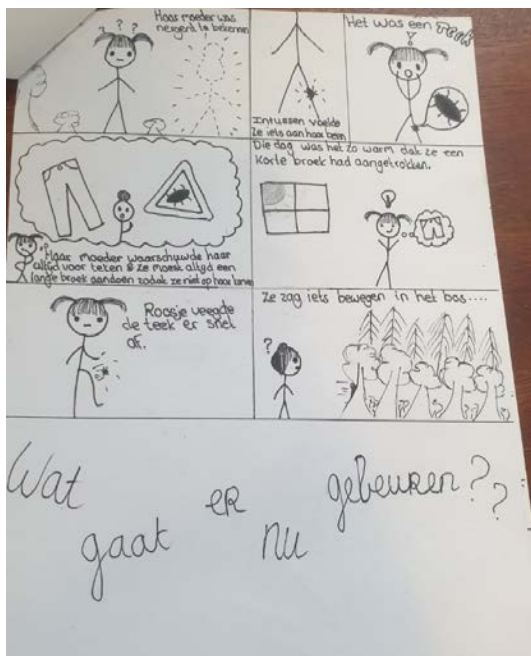 Haar moeder was
nergend te bekennen
Intussen voelde
ze iets aan haar been
Het was een teek
Haar moeder waarschuwde haar
altijd voor teken & ze moest altijd een
lange broek aandoen zodat ze niet op haar
Die dag was het zo warm dat ze een
korte broek had aangetrokken.
Roosje veegde
de teek er snel
af.
Ze zag iets bewegen in het bos....
Wat gaat er nu gebeuren??